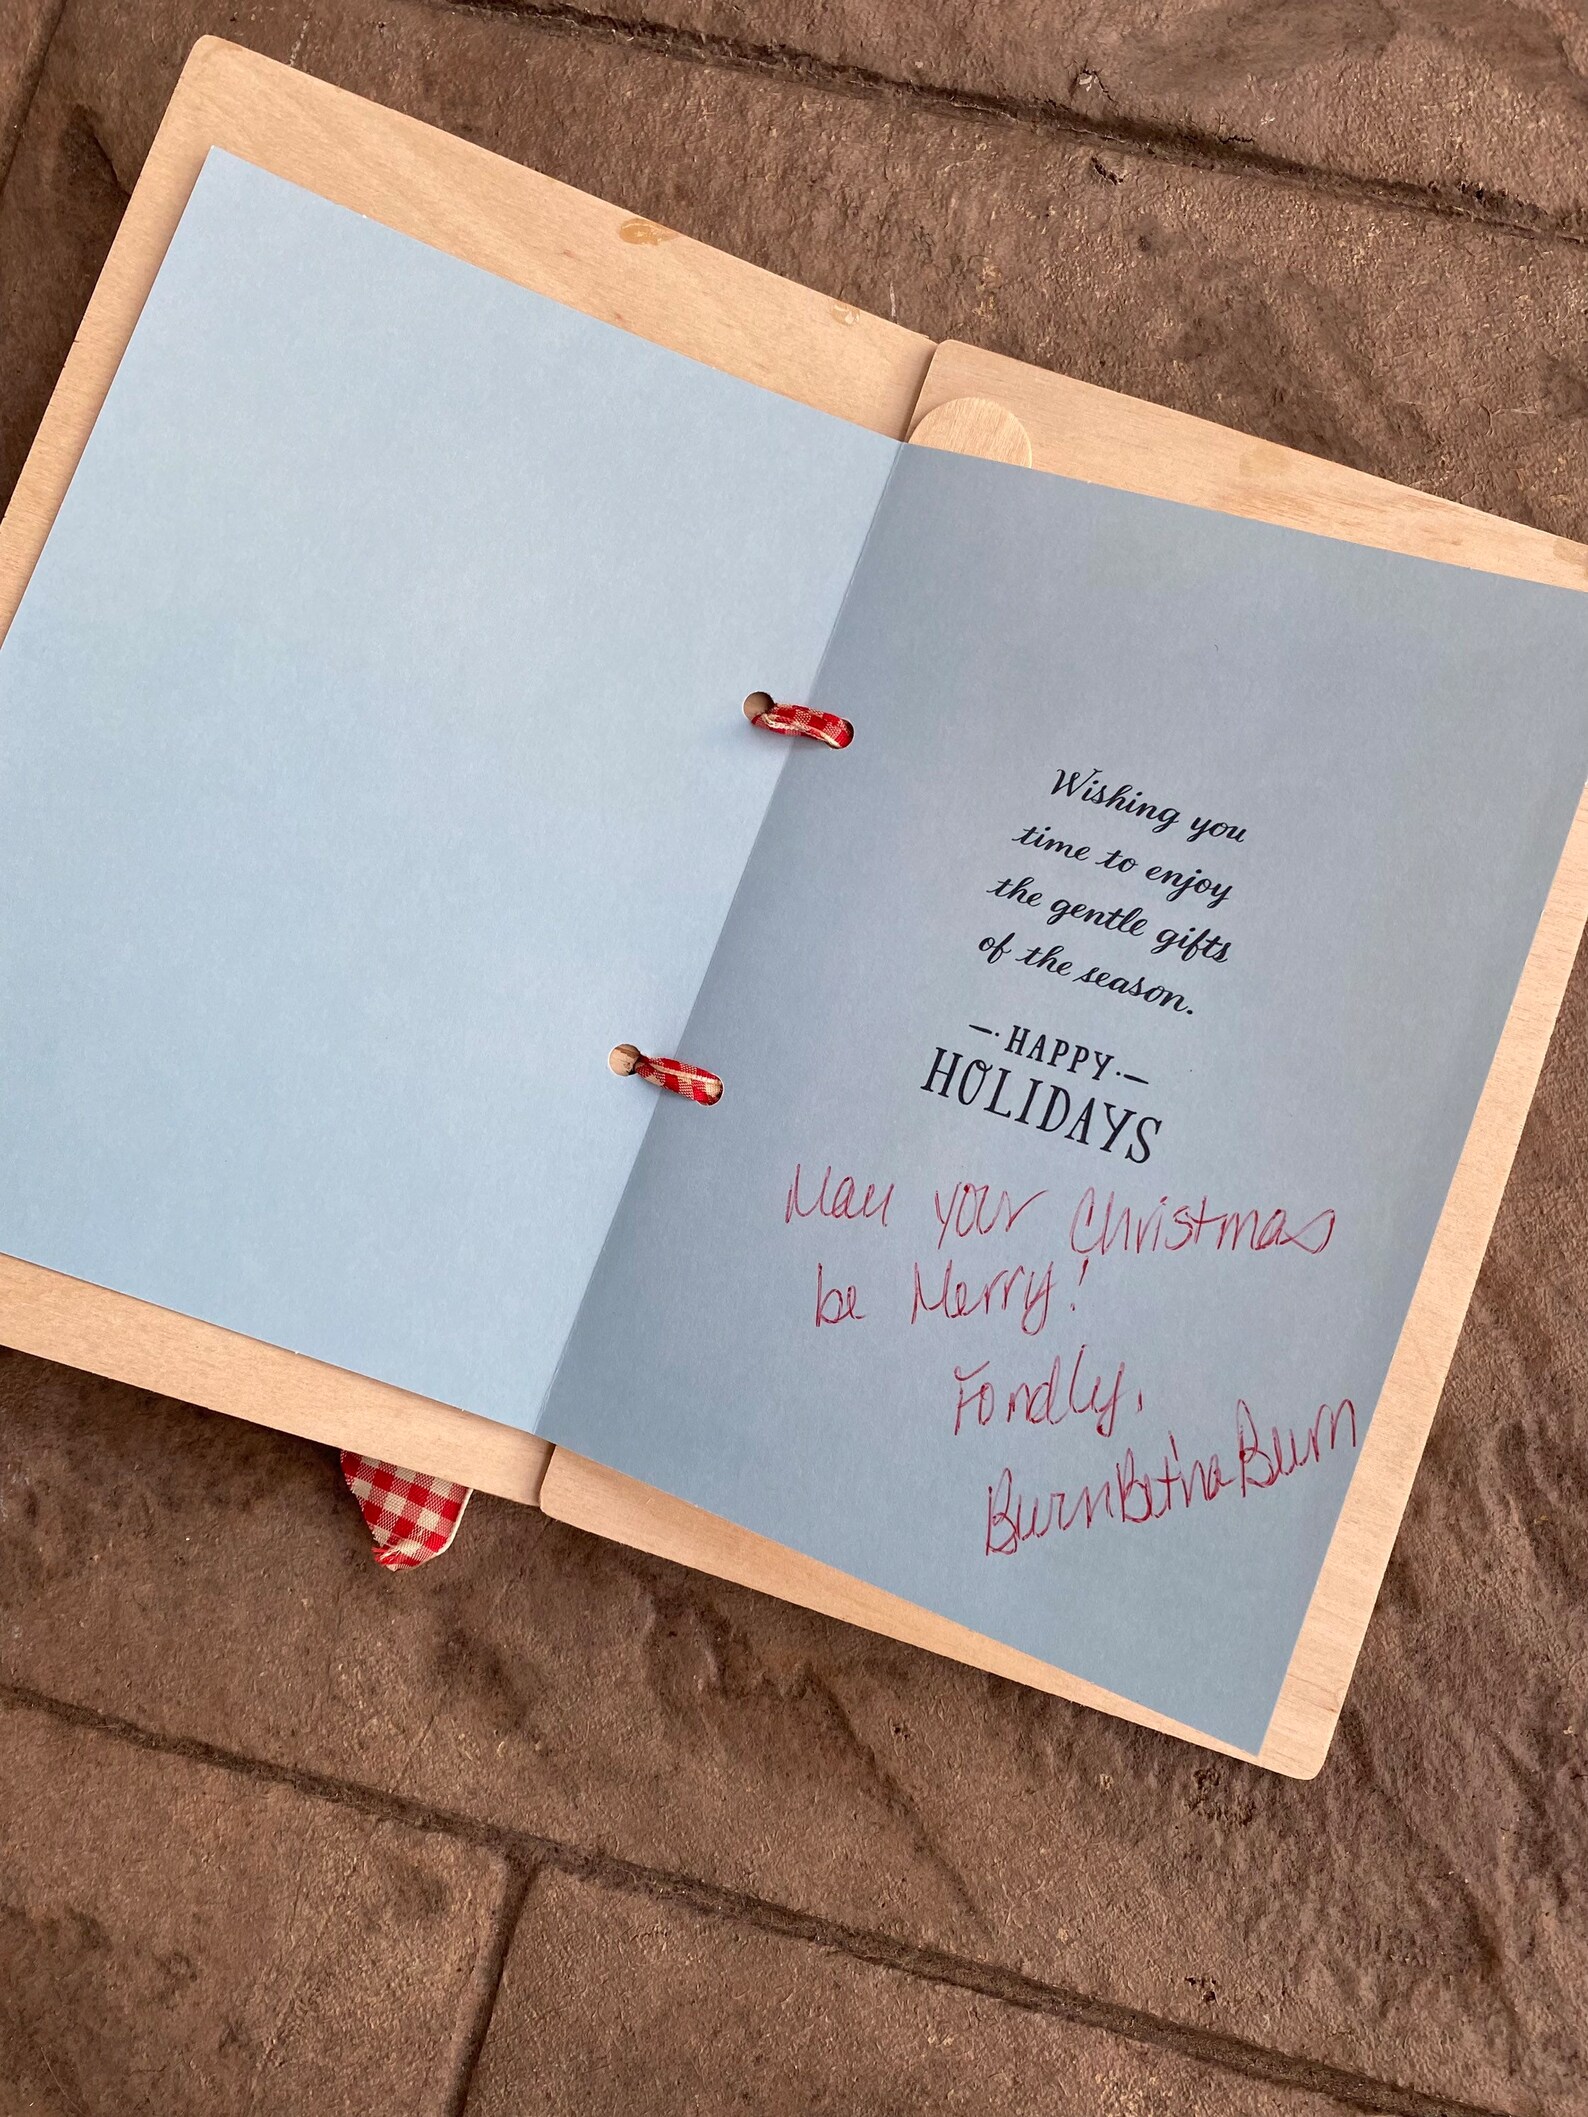 Wishing you
time to enjoy
the gentle gifts
of the season.
—· HAPPY ·—
HOLIDAYS
May your Christmas
be Merry!
Fondly,